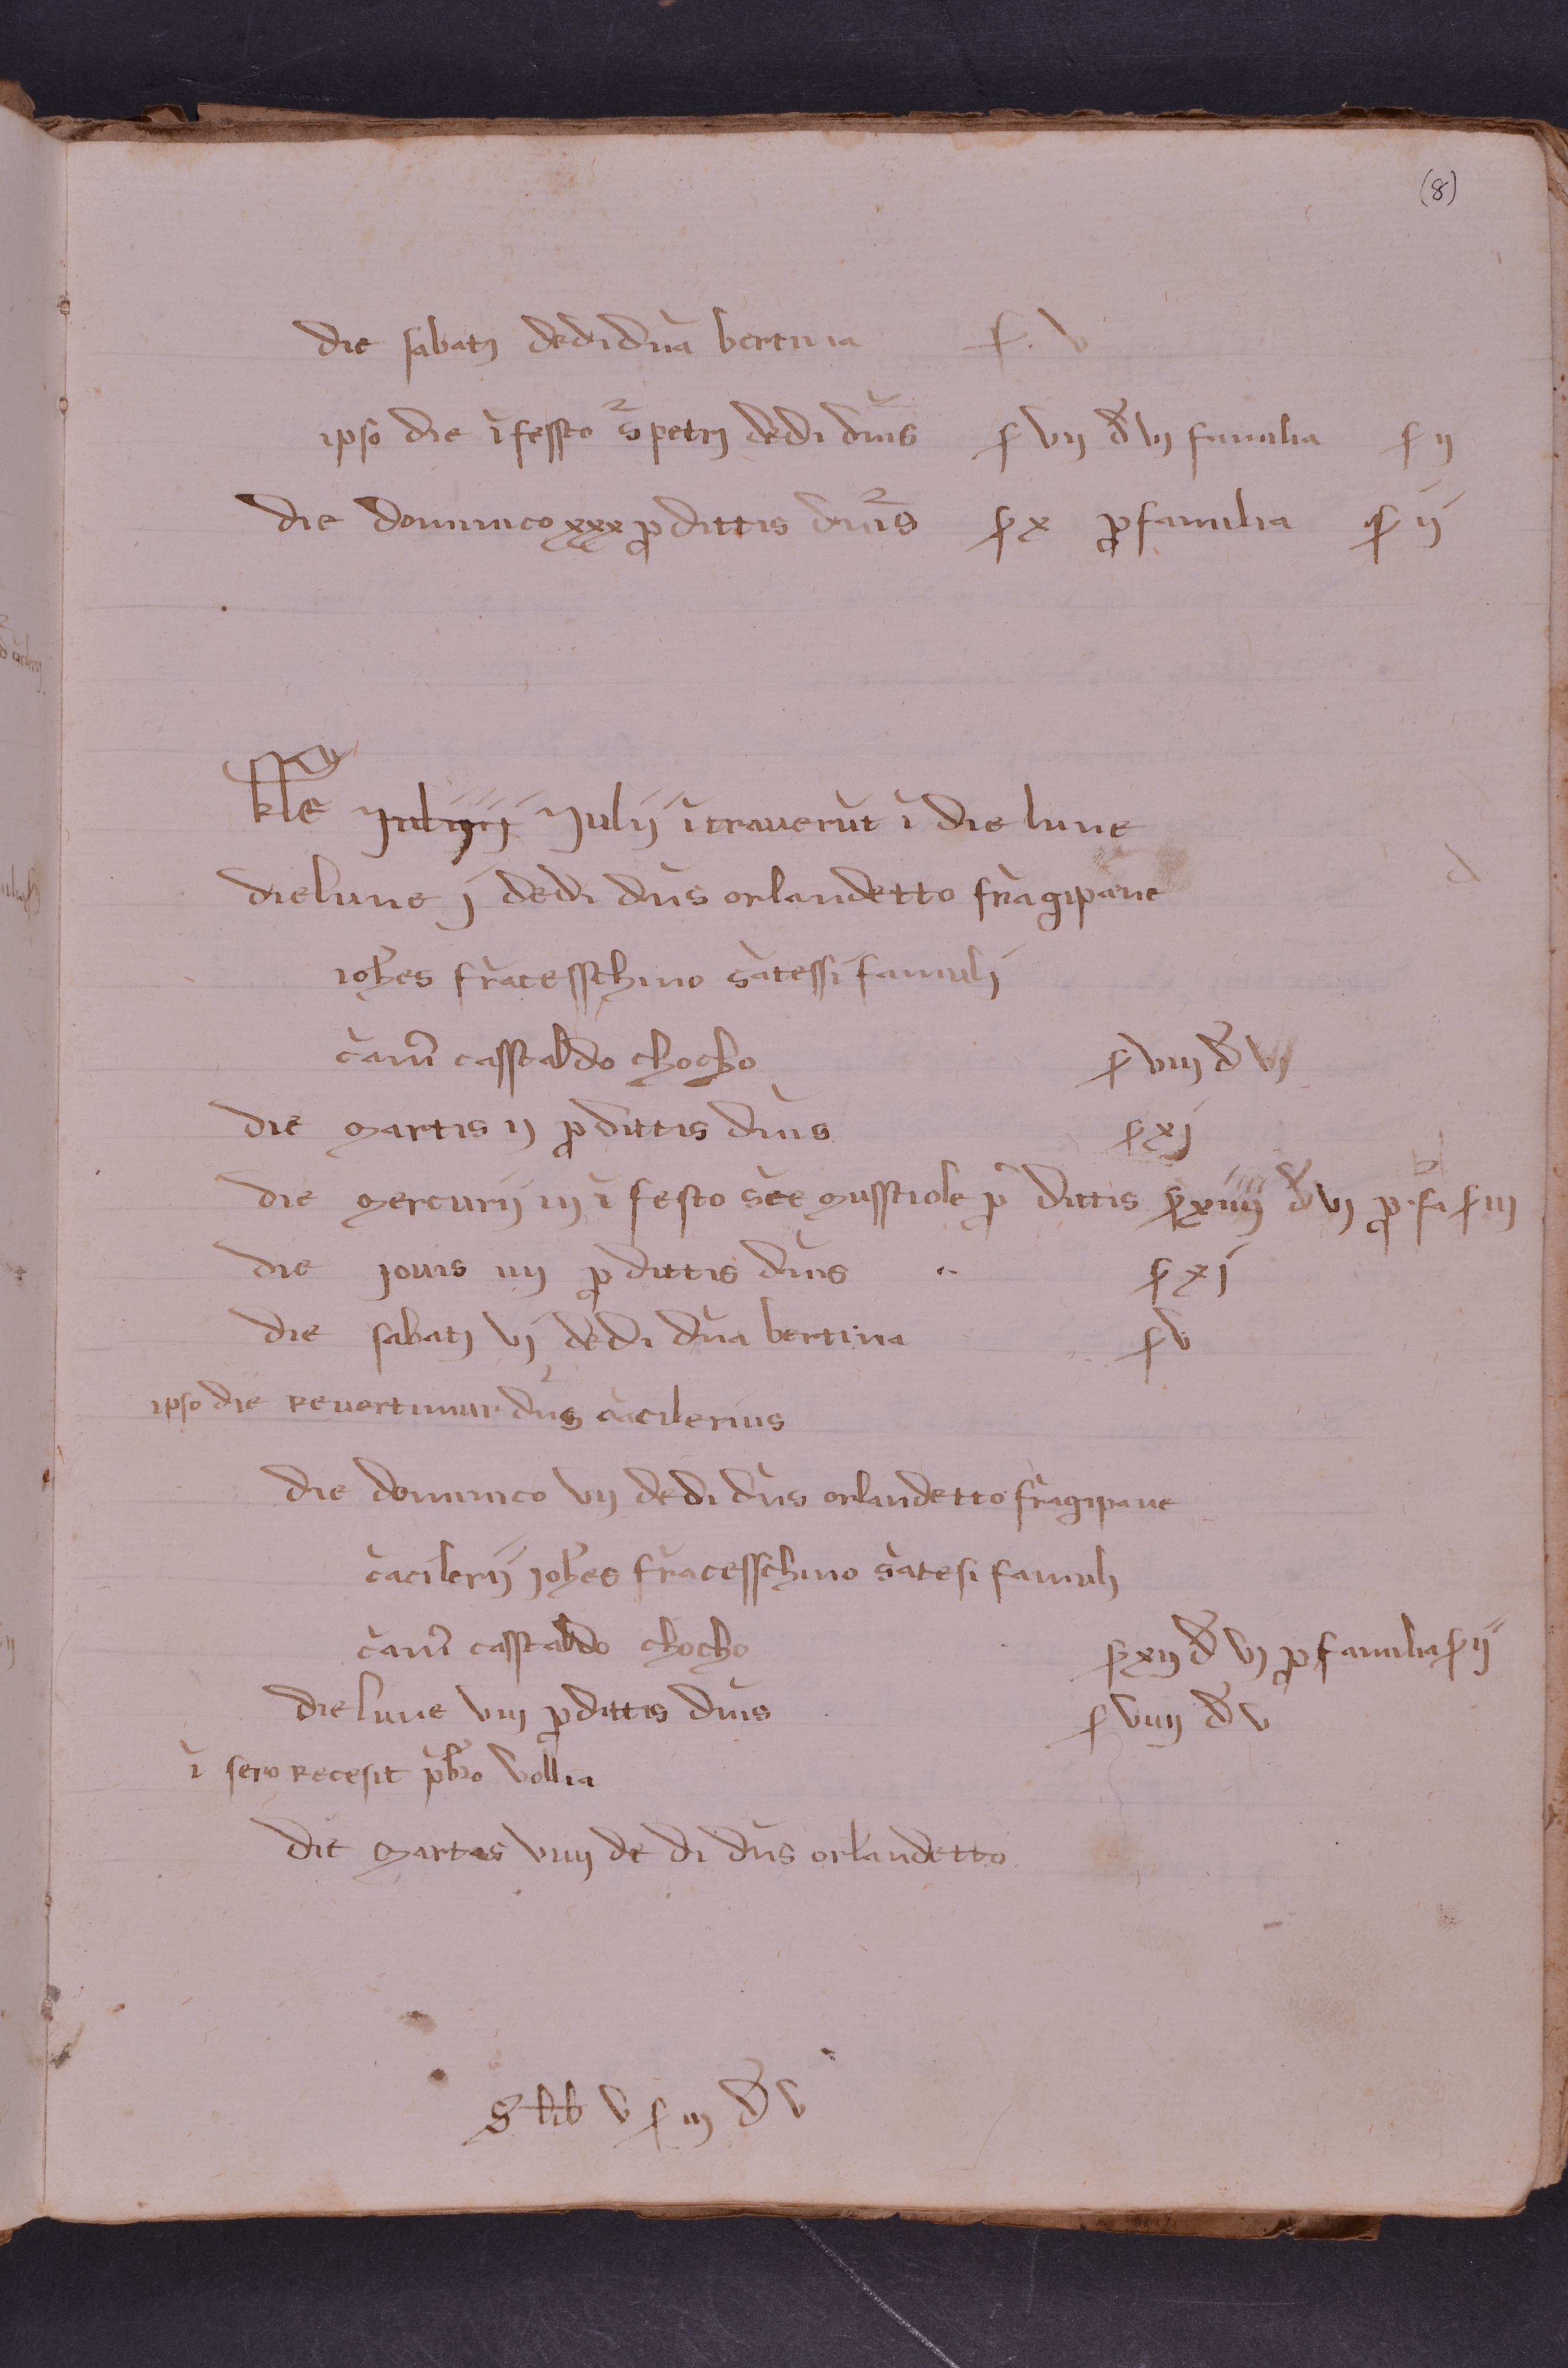 (8)
die sabatj dedi dn̄a bertina s. v
ipso die ī fessto s̄ petrj dedi dn̄is s vij đ vj familia s ij
die dominico xxx ꝓ dittis dn̄is s x ꝓ familia s ij
kl̄e Julijij Julij ītraverūt ī die lune
die lune j dedi dn̄s orlandetto frāgipane
ioh̄es frācesschino sātessi famulj
cānī casstaldo chocho s viiij đ vj
die martis ij ꝓ dittis dn̄is s xj
die mercurij iij ī festo sc̄e musstiole ꝓ dittis s xiiij đ vj ꝓ fa s iij
die jovis iiij ꝓ dittis dn̄is s xj
die sabatj vj dedi dn̄a bertina s v
ipso die revertimur dn̄s cācilerius
die dominico vij dedi dn̄s orlandetto frāgipane
cācilerij joh̄es frācesschino sātesi famulj
cānī casstaldo chocho s xij đ vj ꝓ familia s ij
die lune viij ꝓ dittis dn̄is s viiij đ v
ī sero recesit pb̄ro vollia
die martis viiij de di dn̄s orlandetto
S lib v s iij đ v